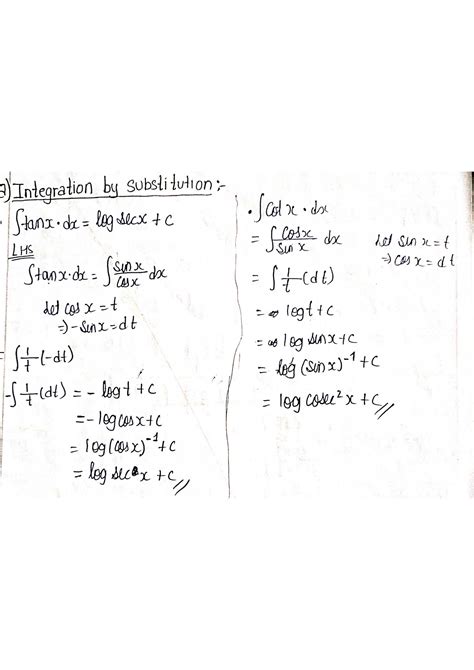 2) Integration by substitution:-
∫tanx·dx = log secx + c
LHS
∫tanx·dx = ∫ sinx/cosx dx
let cos x = t
=) -sinx = dt
= ∫ 1/t (-dt)
-∫ 1/t (dt) = - logt + c
= - log cosx + c
= log(cosx)⁻¹ + c
= log sec x + c //
• ∫Cot x · dx
= ∫ Cosx/Sinx dx
let sin x = t
⇒ cos x = dt
= ∫ 1/t (dt)
= logt + c
= log sinx + c
= log (sinx)⁻¹ + c
= log cosec²x + c //